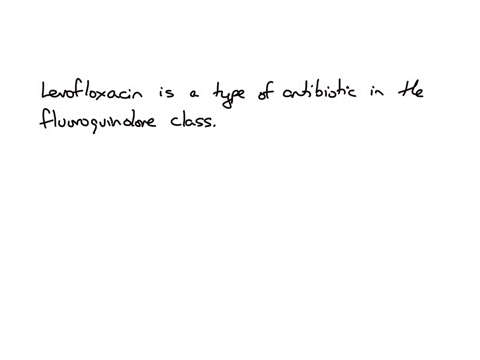 Levofloxacin is a type of antibiotic in the
fluoroquinolone class.